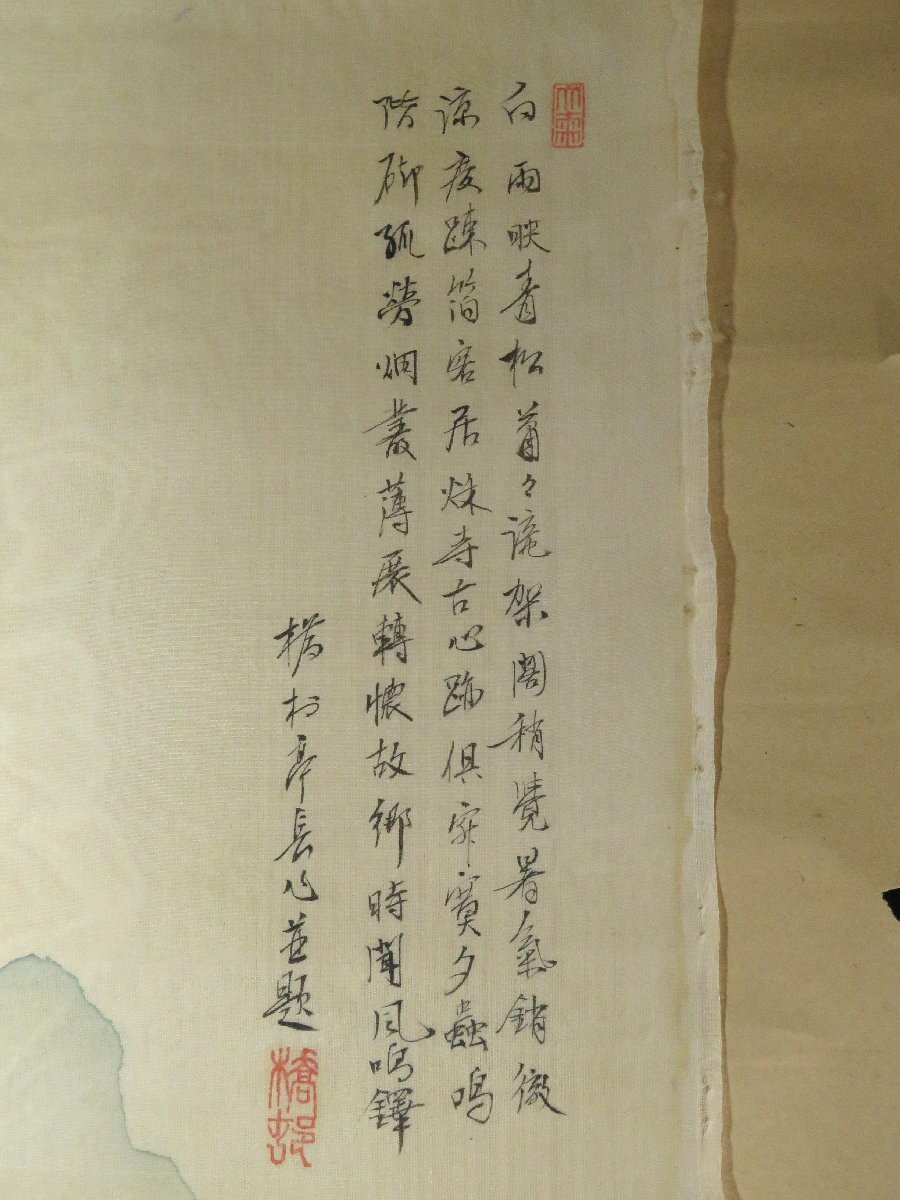 白雨映青松蕭々灑架閣稍覺暑氣銷微
涼度踈箔客居秋寺古心跡俱寂寞夕蟲鳴
階砌孤螢烟叢薄展轉懷故鄉時聞風鳴鐸
橋村亭長作並題
橋邨